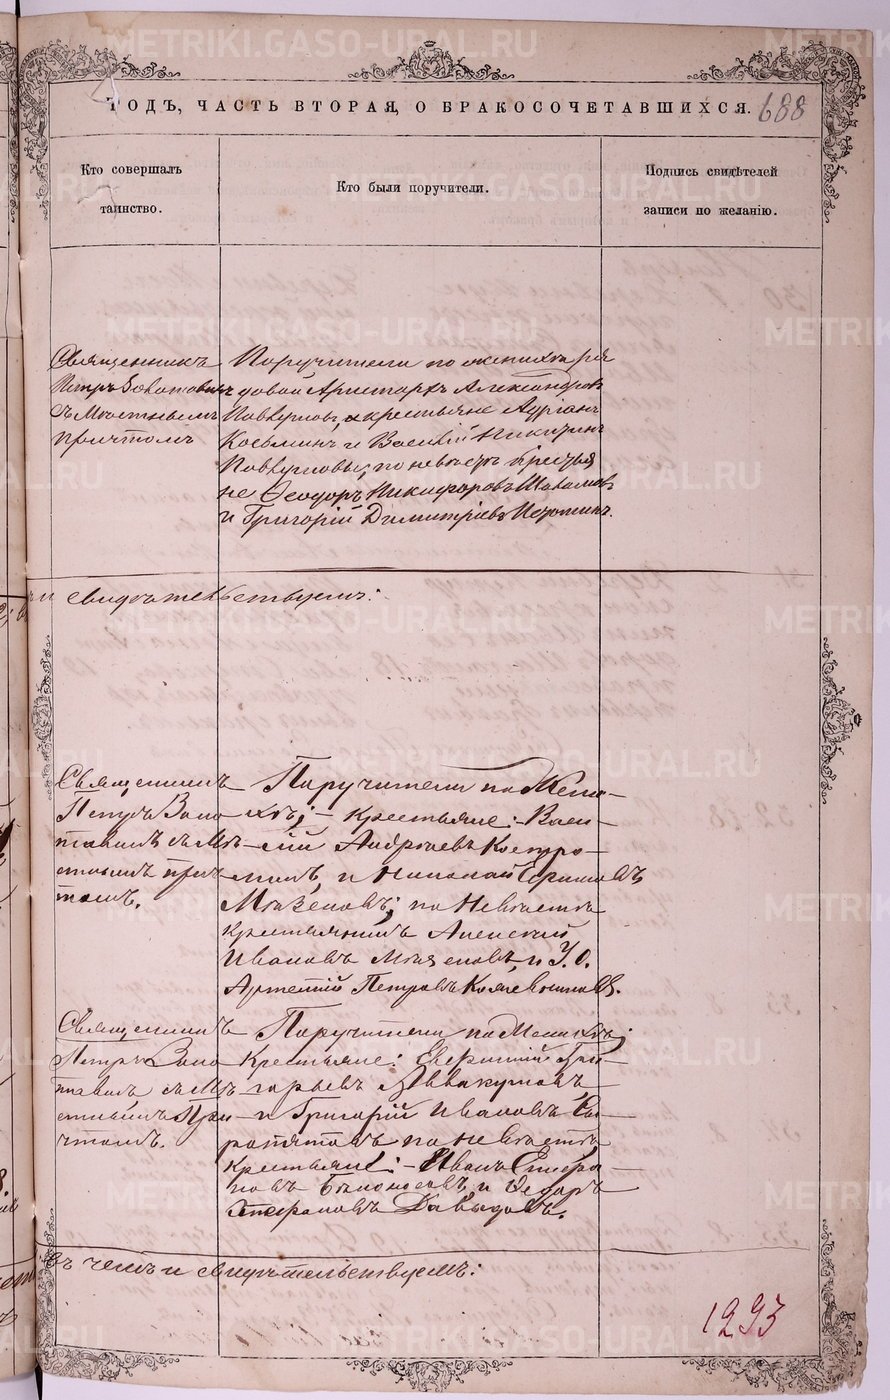 ГОДЪ, ЧАСТЬ ВТОРАЯ, О БРАКОСОЧЕТАВШИХСЯ.
688
Кто совершалъ
таинство.
Кто были поручители.
Подпись свидѣтелей
записи по желанію.
Священникъ
Петръ
съ Мѣстнымъ
причтомъ
Поручители по женихѣ ря
довой Аристархъ Александровъ
крестьяне Адріанъ
Козьминъ и Василій Никитинъ
по невѣстѣ крестья
не Ѳеодоръ Никифоровъ
и Григорій Димитріевъ
свидѣтельствуемъ:
Священникъ
Петръ Золо
съ Мѣ
стнымъ прич
томъ.
Поручители по Жени
хѣ; – крестьяне: – Васи
лій Андреевъ Костро
минъ, и Николай
по Невѣстѣ
крестьянинъ Алексѣй
Ивановъ и У. О.
Артемій Петровъ Кожевниковъ.
Священникъ
Петръ Золо
съ Мѣ
стнымъ При
чтомъ.
Поручители по Женихѣ;
Крестьяне: Гри
горьевъ Аввакумовъ,
и Григорій Ивановъ
по невѣстѣ
Крестьяне: – Иванъ
и Ѳедоръ
Стефановъ Давыдовъ.
въ чемъ и свидѣтельствуемъ:
1293
METRIKI.GASO-URAL.RU